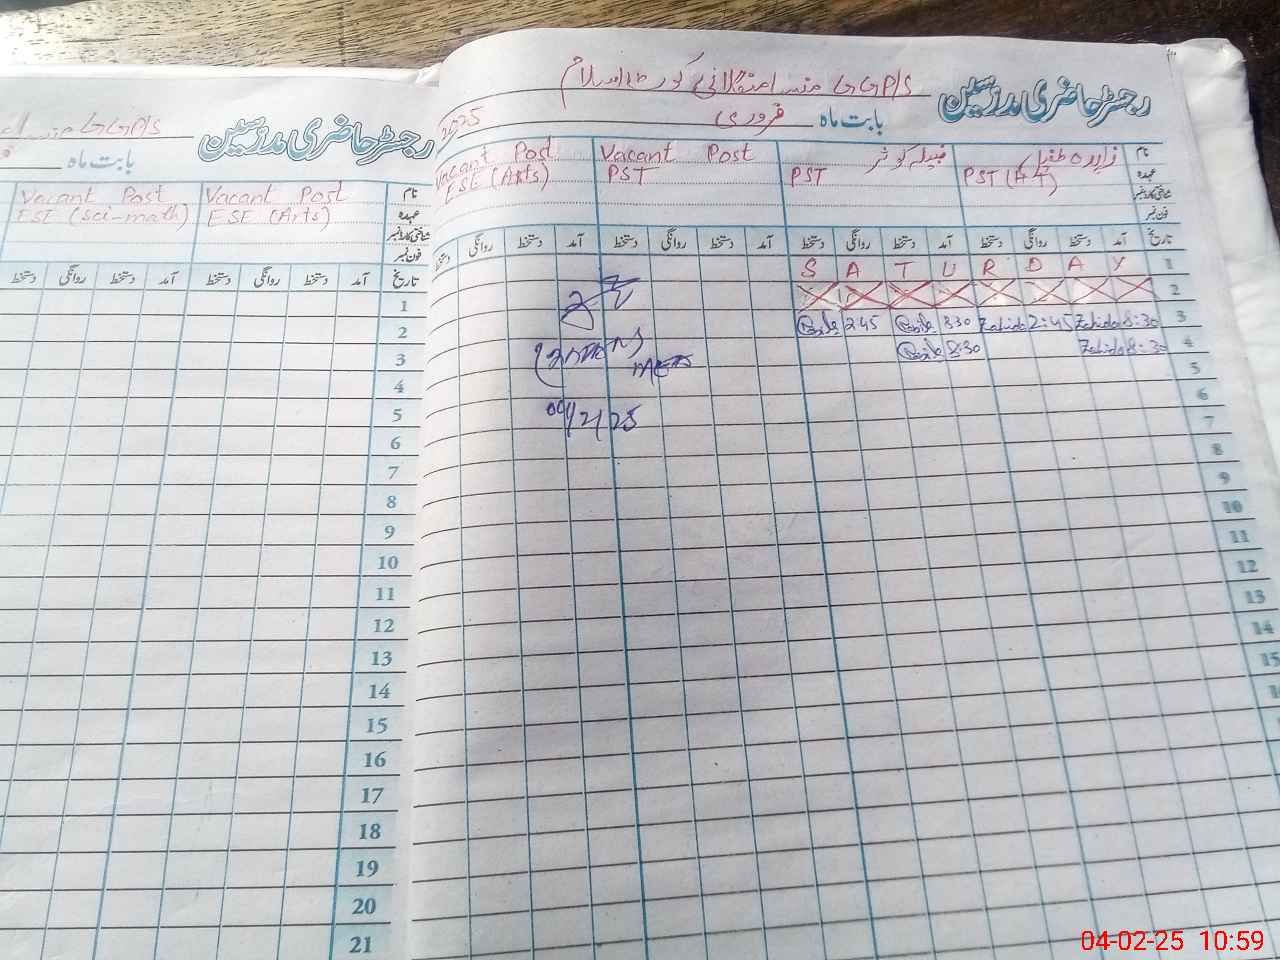 رجسٹر حاضری مدرسین GGP/S
بابت ماہ فروری 2025
نام زاہدہ طفیل Vacant Post Vacant Post
عہدہ PST PST ESE (Arts)
شناختی کارڈ نمبر
فون نمبر
تاریخ آمد دستخط روانگی دستخط آمد دستخط روانگی دستخط آمد دستخط روانگی دستخط آمد دستخط روانگی دستخط
1 S A T U R D A Y
2
3 Zahida 8:30 Zahida 2:45 8:30 2:45
4 Zahida 8:30 8:30
5
6
7
8
9
10
11
12
13
14
15
/2/25
رجسٹر حاضری مدرسین GGP/S
بابت ماہ
نام Vacant Post Vacant Post
عہدہ ESE (Arts) ESE (Sci-math)
شناختی کارڈ نمبر
فون نمبر
تاریخ آمد دستخط روانگی دستخط آمد دستخط روانگی دستخط
1
2
3
4
5
6
7
8
9
10
11
12
13
14
15
16
17
18
19
20
21
04-02-25 10:59